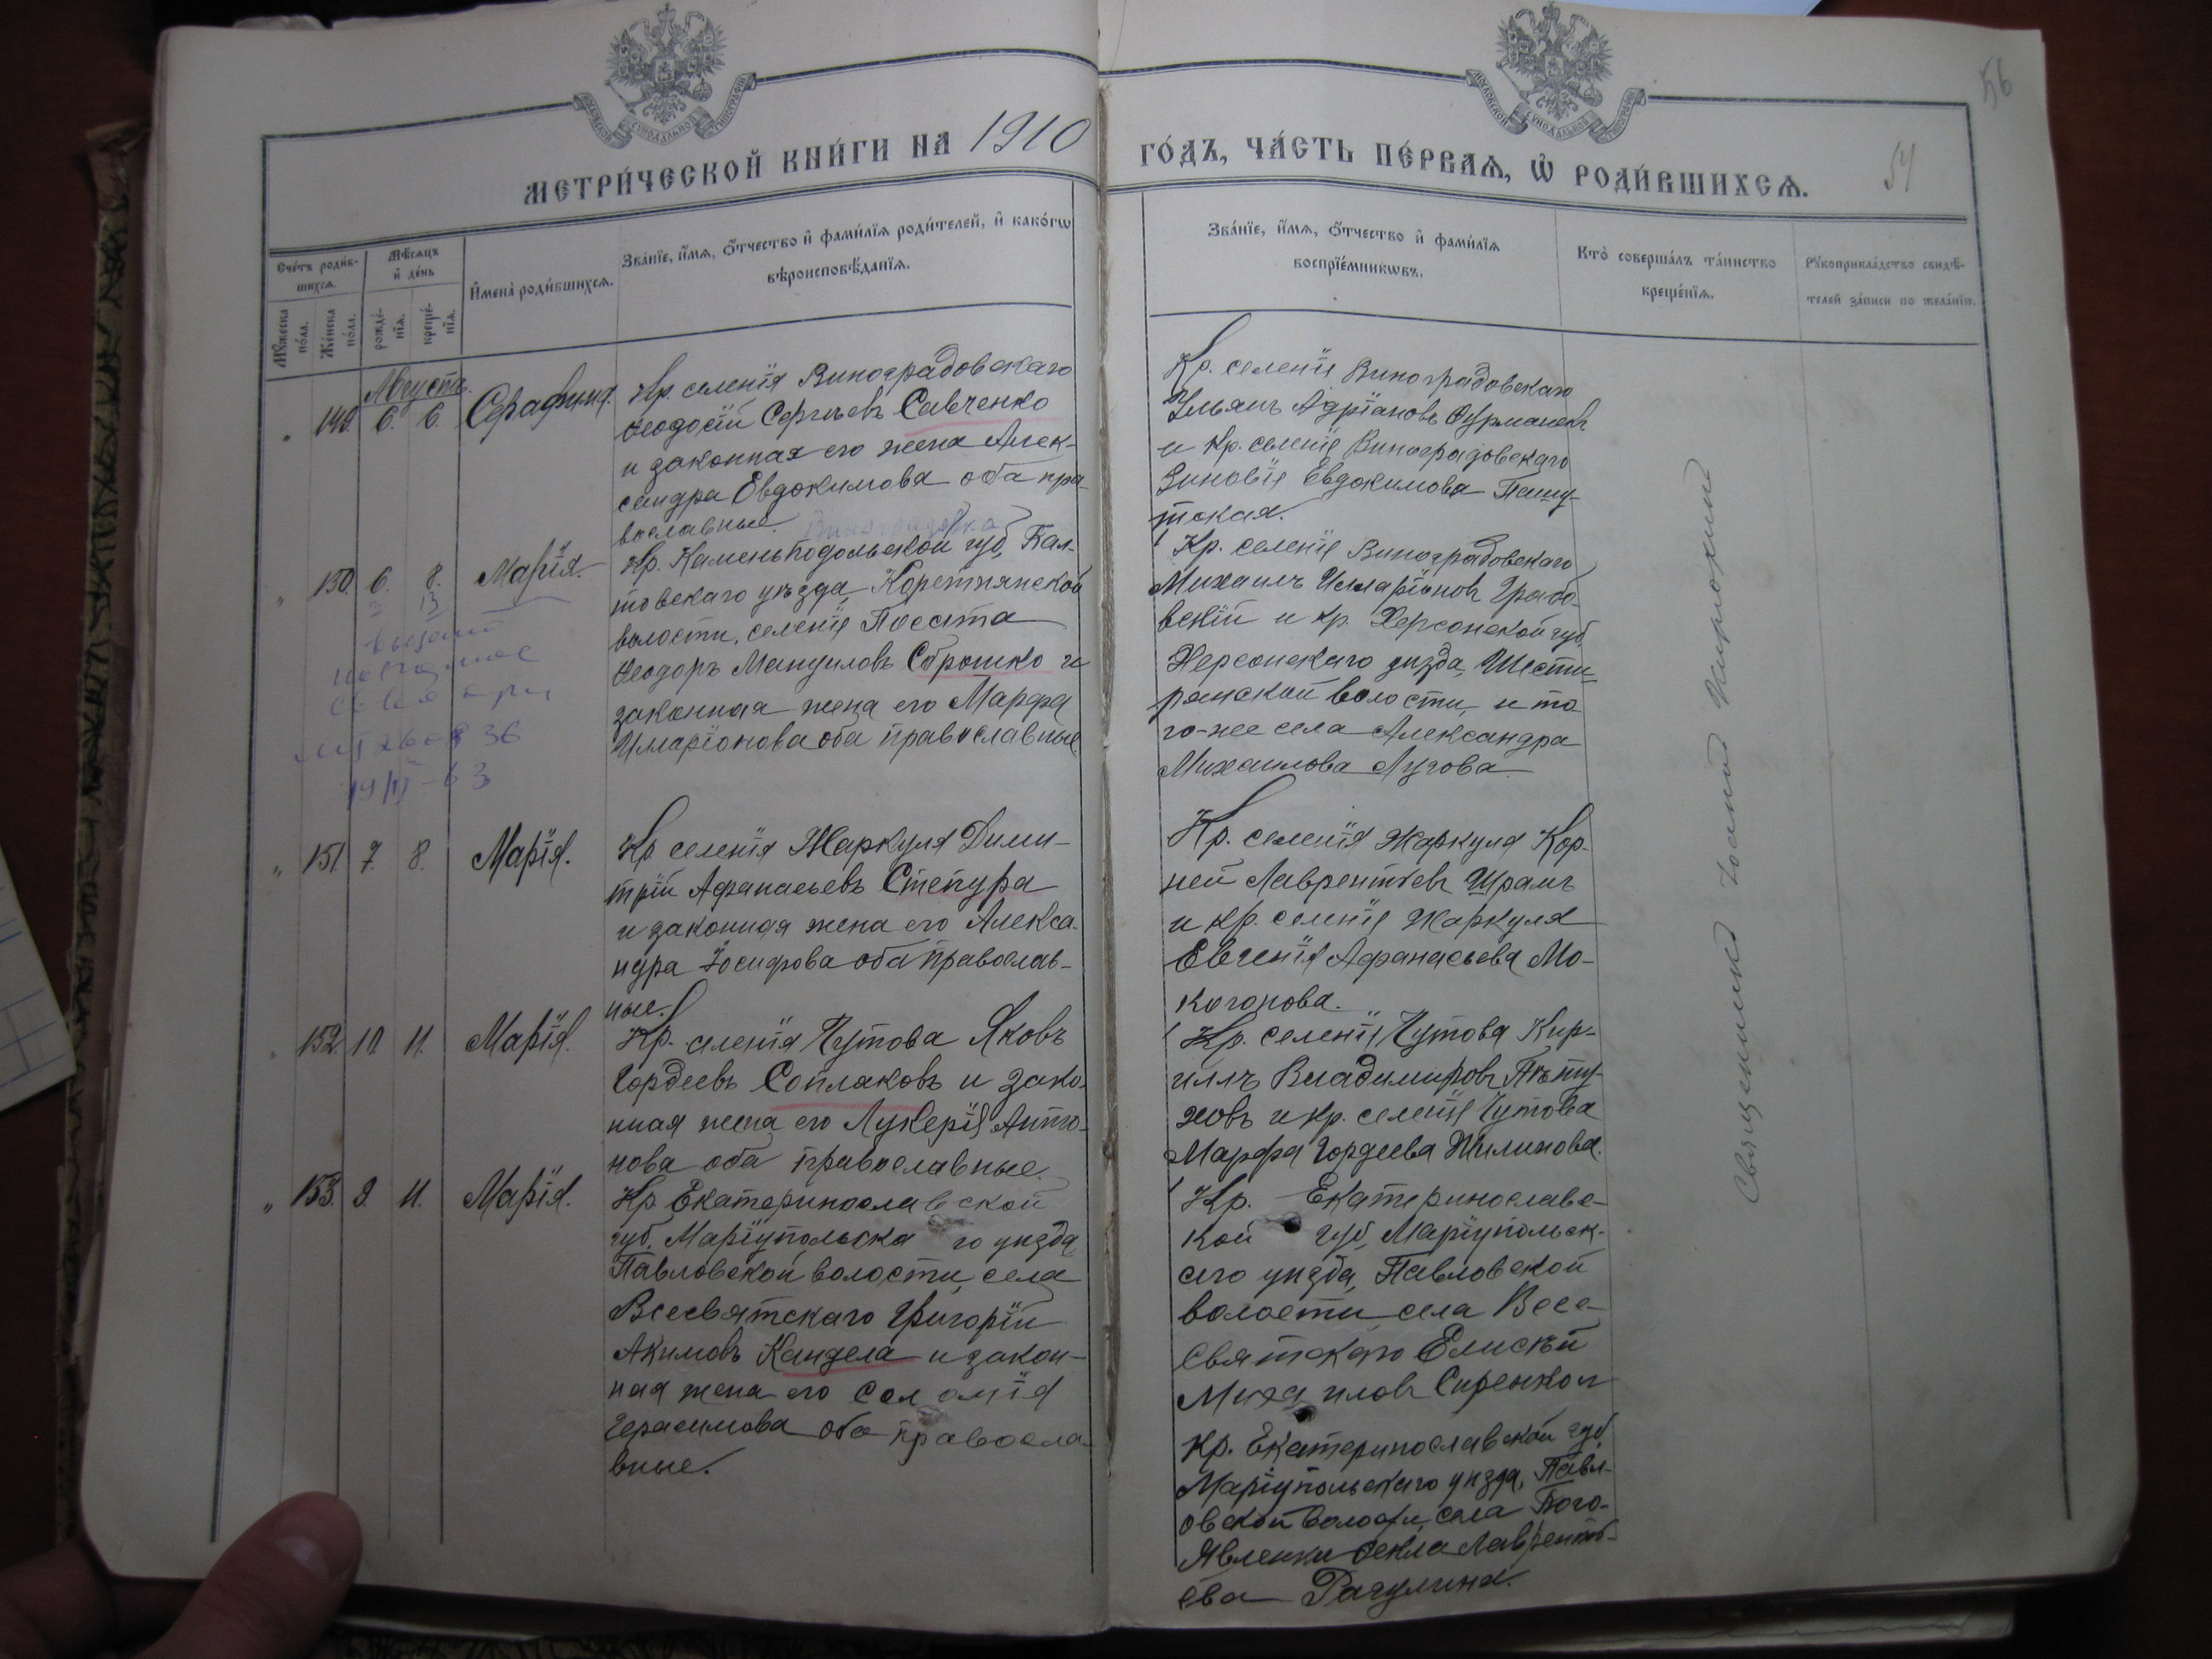 МЕТРИ́ЧЕСКОЙ КНИ́ГИ НА 1910
ГО́ДЪ, ЧА́СТЬ ПЕ́РВАѦ, Ѡ҆ РОДИ́ВШИХСѦ.
56
Сче́тъ роди́в-
шихсѧ.
Мꙋ́жеска по́ла.
Же́нска по́ла.
Мѣ́сѧцъ и҆ де́нь
рожде́-
нїѧ.
креще́-
нїѧ.
И҆мена̀ роди́вшихсѧ.
Зва́нїе, и҆́мѧ, ѻ҆́тчество и҆ фами́лїѧ роди́телей, и҆ како́гѡ
вѣроисповѣ́данїѧ.
Зва́нїе, и҆́мѧ, ѻ҆́тчество и҆ фами́лїѧ
воспрїе́мникѡвъ.
Кто̀ соверша́лъ та́инство
креще́нїѧ.
Рꙋкоприкла́дство свидѣ́-
телей за́писи по жела́нїю.
Августъ.
" 149. 6. 6. Серафима.
Кр. селенія Виноградовскаго
Ѳеодосій Сергіевъ Савченко
и законная его жена Алек-
сандра Евдокимова оба пра-
вославные.
Виноградовка
Кр. селенія Виноградовскаго
Ульянъ Адріановъ Фурманенъ
и кр. селенія Виноградовскаго
Зиновія Евдокимова Пашу-
тская.
" 150. 6. 8. Марія.
Кр. Каменьподольской губ, Бал-
товскаго уѣзда
волости, селенія Посата
Ѳеодоръ Мануиловъ Сорошко и
законная жена его Марфа
Илларіонова оба православные
Кр. селенія Виноградовскаго
Михаилъ Илларіоновъ Грабо-
вскій и кр. Херсонской губ,
Херсонскаго уѣзда, Шести-
рянской волости, и то
го-же села Александра
Михаилова Лугова.
" 151. 7. 8. Марія.
Кр. селенія Жаркуля Дими-
трій Афанасьевъ Степура
и законная жена его Алекса-
ндра Іосифова оба православ-
ные.
Кр. селенія Жаркуля Кор-
ней Лаврентьевъ Шрамъ
и кр. селенія Жаркуля
Евгенія Афанасьева Мо-
когонова.
" 152. 10. 11. Марія.
Кр. селенія Чутова Яковъ
Гордеевъ Соплаковъ и зако-
нная жена его Лукерія Анто-
нова оба православные.
Кр. селенія Чутова Кир-
иллъ Владимировъ Пѣту-
ховъ и кр. селенія Чутова
Марфа Гордеева Жилинова.
" 153. 9. 11. Марія.
Кр. Екатеринославской
губ. Маріупольска го уѣзда
Павловской волости, села
Всесвятскаго Григорій
Акимовъ Кандела и закон-
ная жена его Соломія
Герасимова оба правосла-
вные.
Кр. Екатеринославс-
кой губ, Маріупольск-
аго уѣзда, Павловской
волости села Все-
святскаго Елисѣй
Михаиловъ Сиренко и
Кр. Екатеринославской губ
Маріупольскаго уѣзда, Павл-
овской волости, села Бого-
явленки Ѳекла Лавренть-
ева Рагулина.
Священникъ Іоаннъ